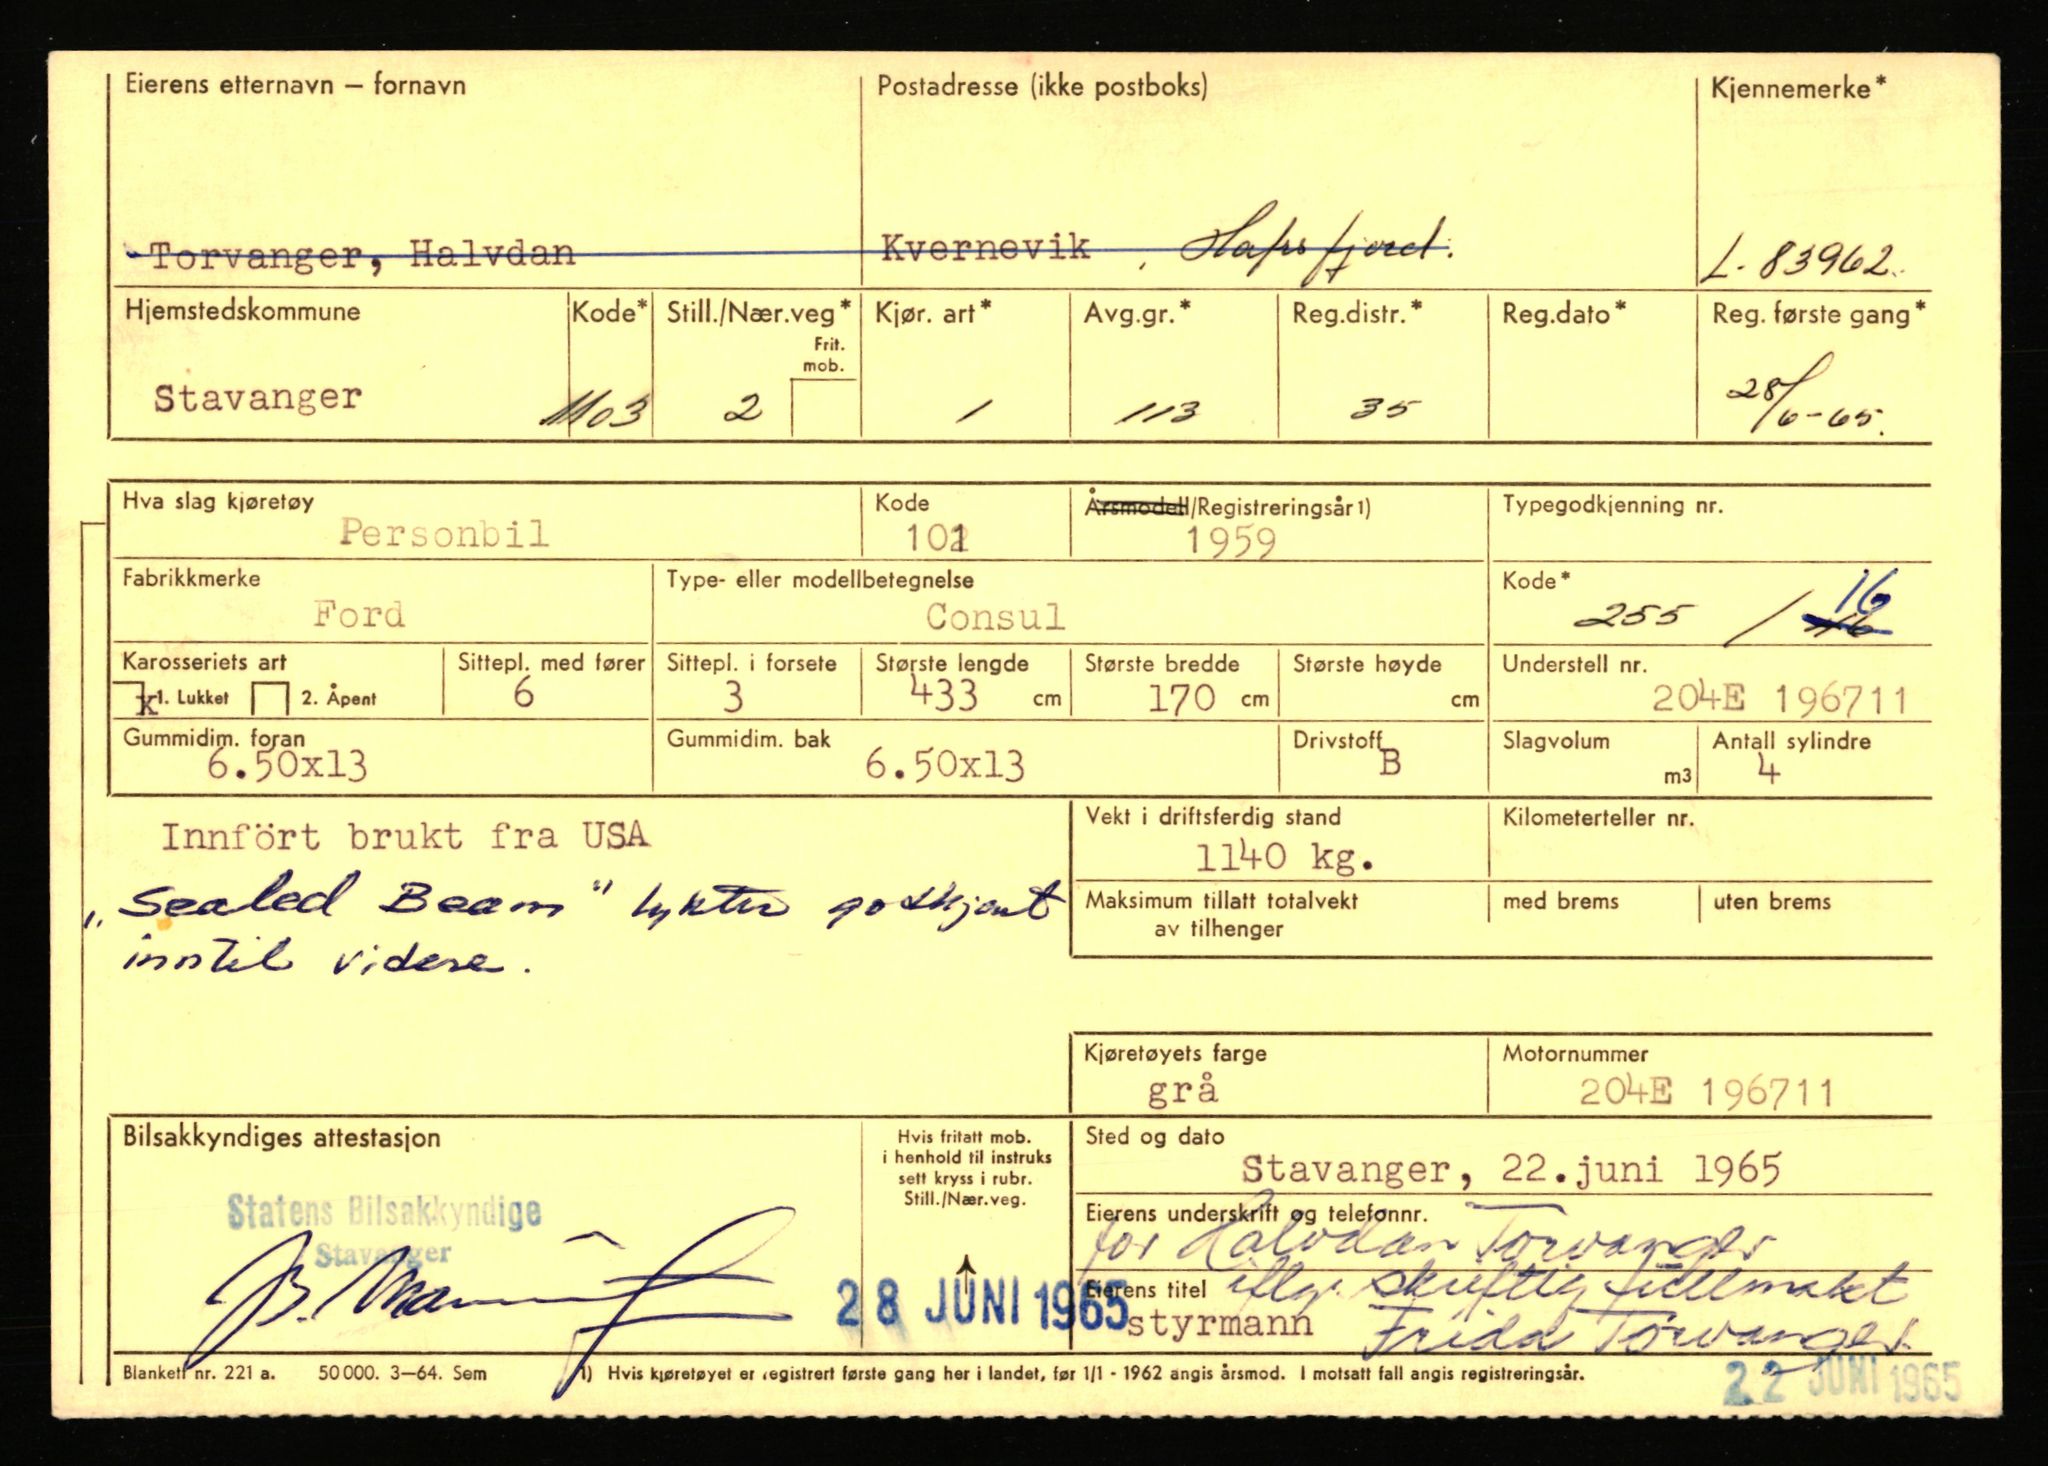 Eierens etternavn – fornavn Postadresse (ikke postboks) Kjennemerke*
Torvanger, Halvdan Kvernevik, Hafrsfjord. L-83962.
Hjemstedskommune Kode* Still./Nær.veg* Kjør. art* Avg.gr.* Reg.distr.* Reg.dato* Reg. første gang*
Frit.
mob.
Stavanger 1103 2 1 113 35 28/6-65.
Hva slag kjøretøy Kode Årsmodell/Registreringsår 1) Typegodkjenning nr.
Personbil 101 1959
Fabrikkmerke Type- eller modellbetegnelse Kode*
Ford Consul 255 / 16
Karosseriets art Sittepl. med fører Sittepl. i forsete Største lengde Største bredde Største høyde Understell nr.
x 1. Lukket 2. Åpent 6 3 433 cm 170 cm cm 204E 196711
Gummidim. foran Gummidim. bak Drivstoff Slagvolum Antall sylindre
6.50x13 6.50x13 B m3 4
Innfört brukt fra USA
Vekt i driftsferdig stand Kilometerteller nr.
1140 kg.
„Sealed Beam" lykter godkjent
inntil videre.
Maksimum tillatt totalvekt med brems uten brems
av tilhenger
Kjøretøyets farge Motornummer
grå 204E 196711
Bilsakkyndiges attestasjon
Hvis fritatt mob.
i henhold til instruks
sett kryss i rubr.
Still./Nær.veg.
Sted og dato
Stavanger, 22.juni 1965
Statens Bilsakkyndige
Stavanger
Eierens underskrift og telefonnr.
for Halvdan Torvanger
28 JUNI 1965
Eierens titel iflg. skriftlig fullmakt
styrmann Frida Torvanger.
Blankett nr. 221 a. 50 000. 3–64. Sem 1) Hvis kjøretøyet er registrert første gang her i landet, før 1/1 - 1962 angis årsmod. I motsatt fall angis registreringsår.
22 JUNI 1965